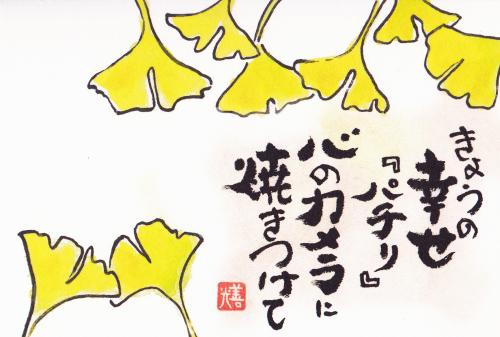 きょうの
幸せ
『パチリ』
心のカメラに
焼きつけて